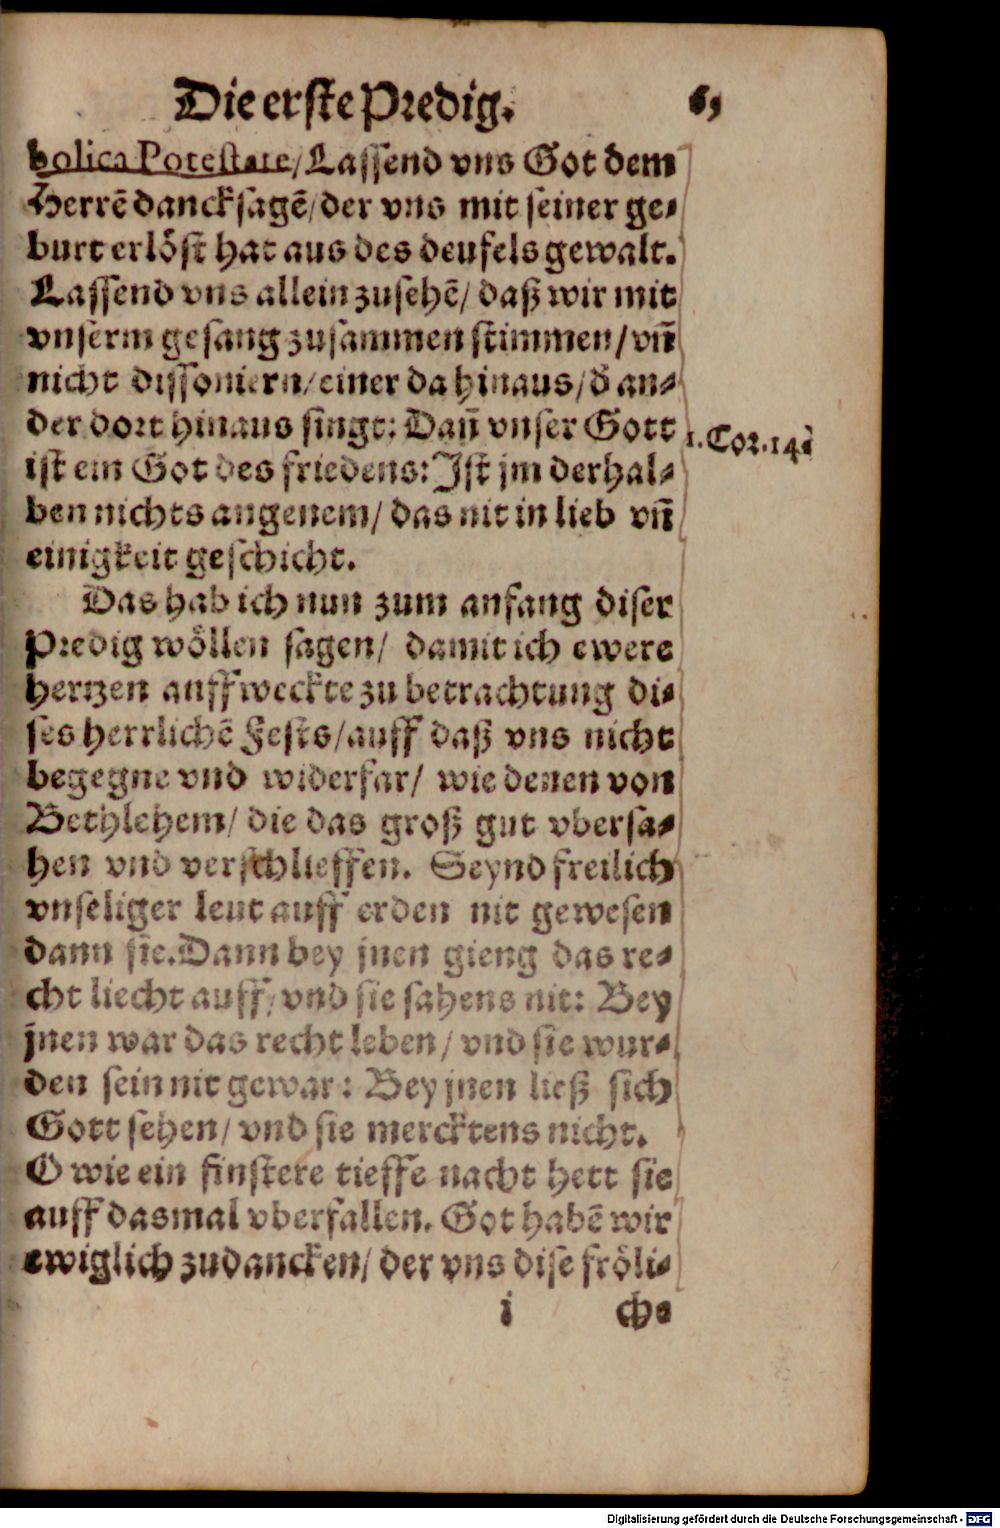 Die erste Predig. 65
bolica Potestate/ Lassend vns Got dem
Herrẽ dancksagẽ/ der vns mit seiner ge-
burt erlöst hat aus des deufels gewalt.
Lassend vns allein zusehẽ/ daß wir mit
vnserm gesang zusammen stimmen/ vñ
nicht dissoniern/ einer da hinaus/ d̕ an-
der dort hinaus singt: Dañ vnser Gott
1. Cor. 14.
ist ein Got des friedens: Ist jm derhal-
ben nichts angenem/ das nit in lieb vñ
einigkeit geschicht.
Das hab ich nun zum anfang diser
Predig wöllen sagen/ damit ich ewere
hertzen auffweckte zu betrachtung di-
ses herrlichẽ Fests/ auff daß vns nicht
begegne vnd widerfar/ wie denen von
Bethlehem/ die das groß gut vbersa-
hen vnd verschlieffen. Seynd freilich
vnseliger leut auff erden nit gewesen
dann sie. Dann bey jnen gieng das re-
cht liecht auff/ vnd sie sahens nit: Bey
jnen war das recht leben/ vnd sie wur-
den sein nit gewar: Bey jnen ließ sich
Gott sehen/ vnd sie mercktens nicht.
O wie ein finstere tieffe nacht hett sie
auff dasmal vberfallen. Got habẽ wir
ewiglich zudancken/ der vns dise fröli-
i che
Digitalisierung gefördert durch die Deutsche Forschungsgemeinschaft - DFG